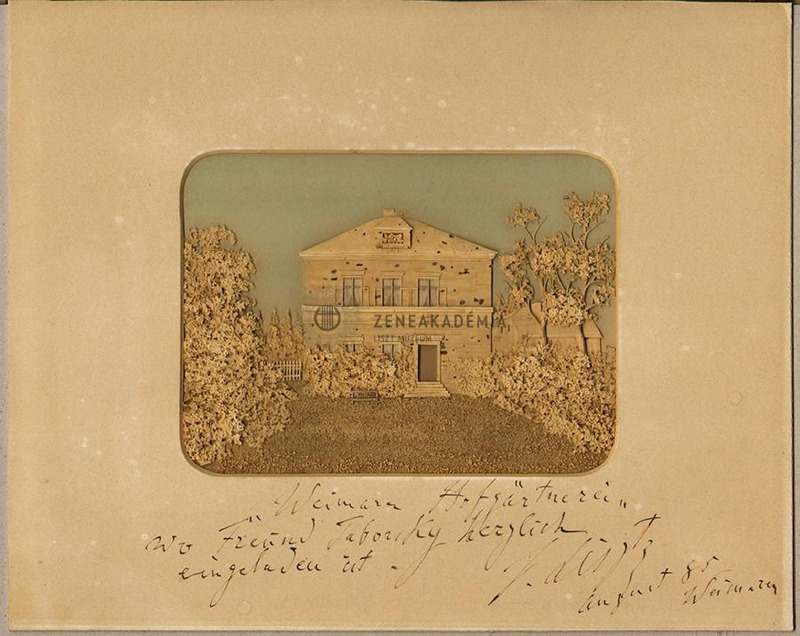 ZENEAKADÉMIA
LISZT MÚZEUM
Weimarer Hofgärtnerei"
wo Freund Taborsky herzlich
eingeladen ist -
F. Liszt
August 85
Weimar